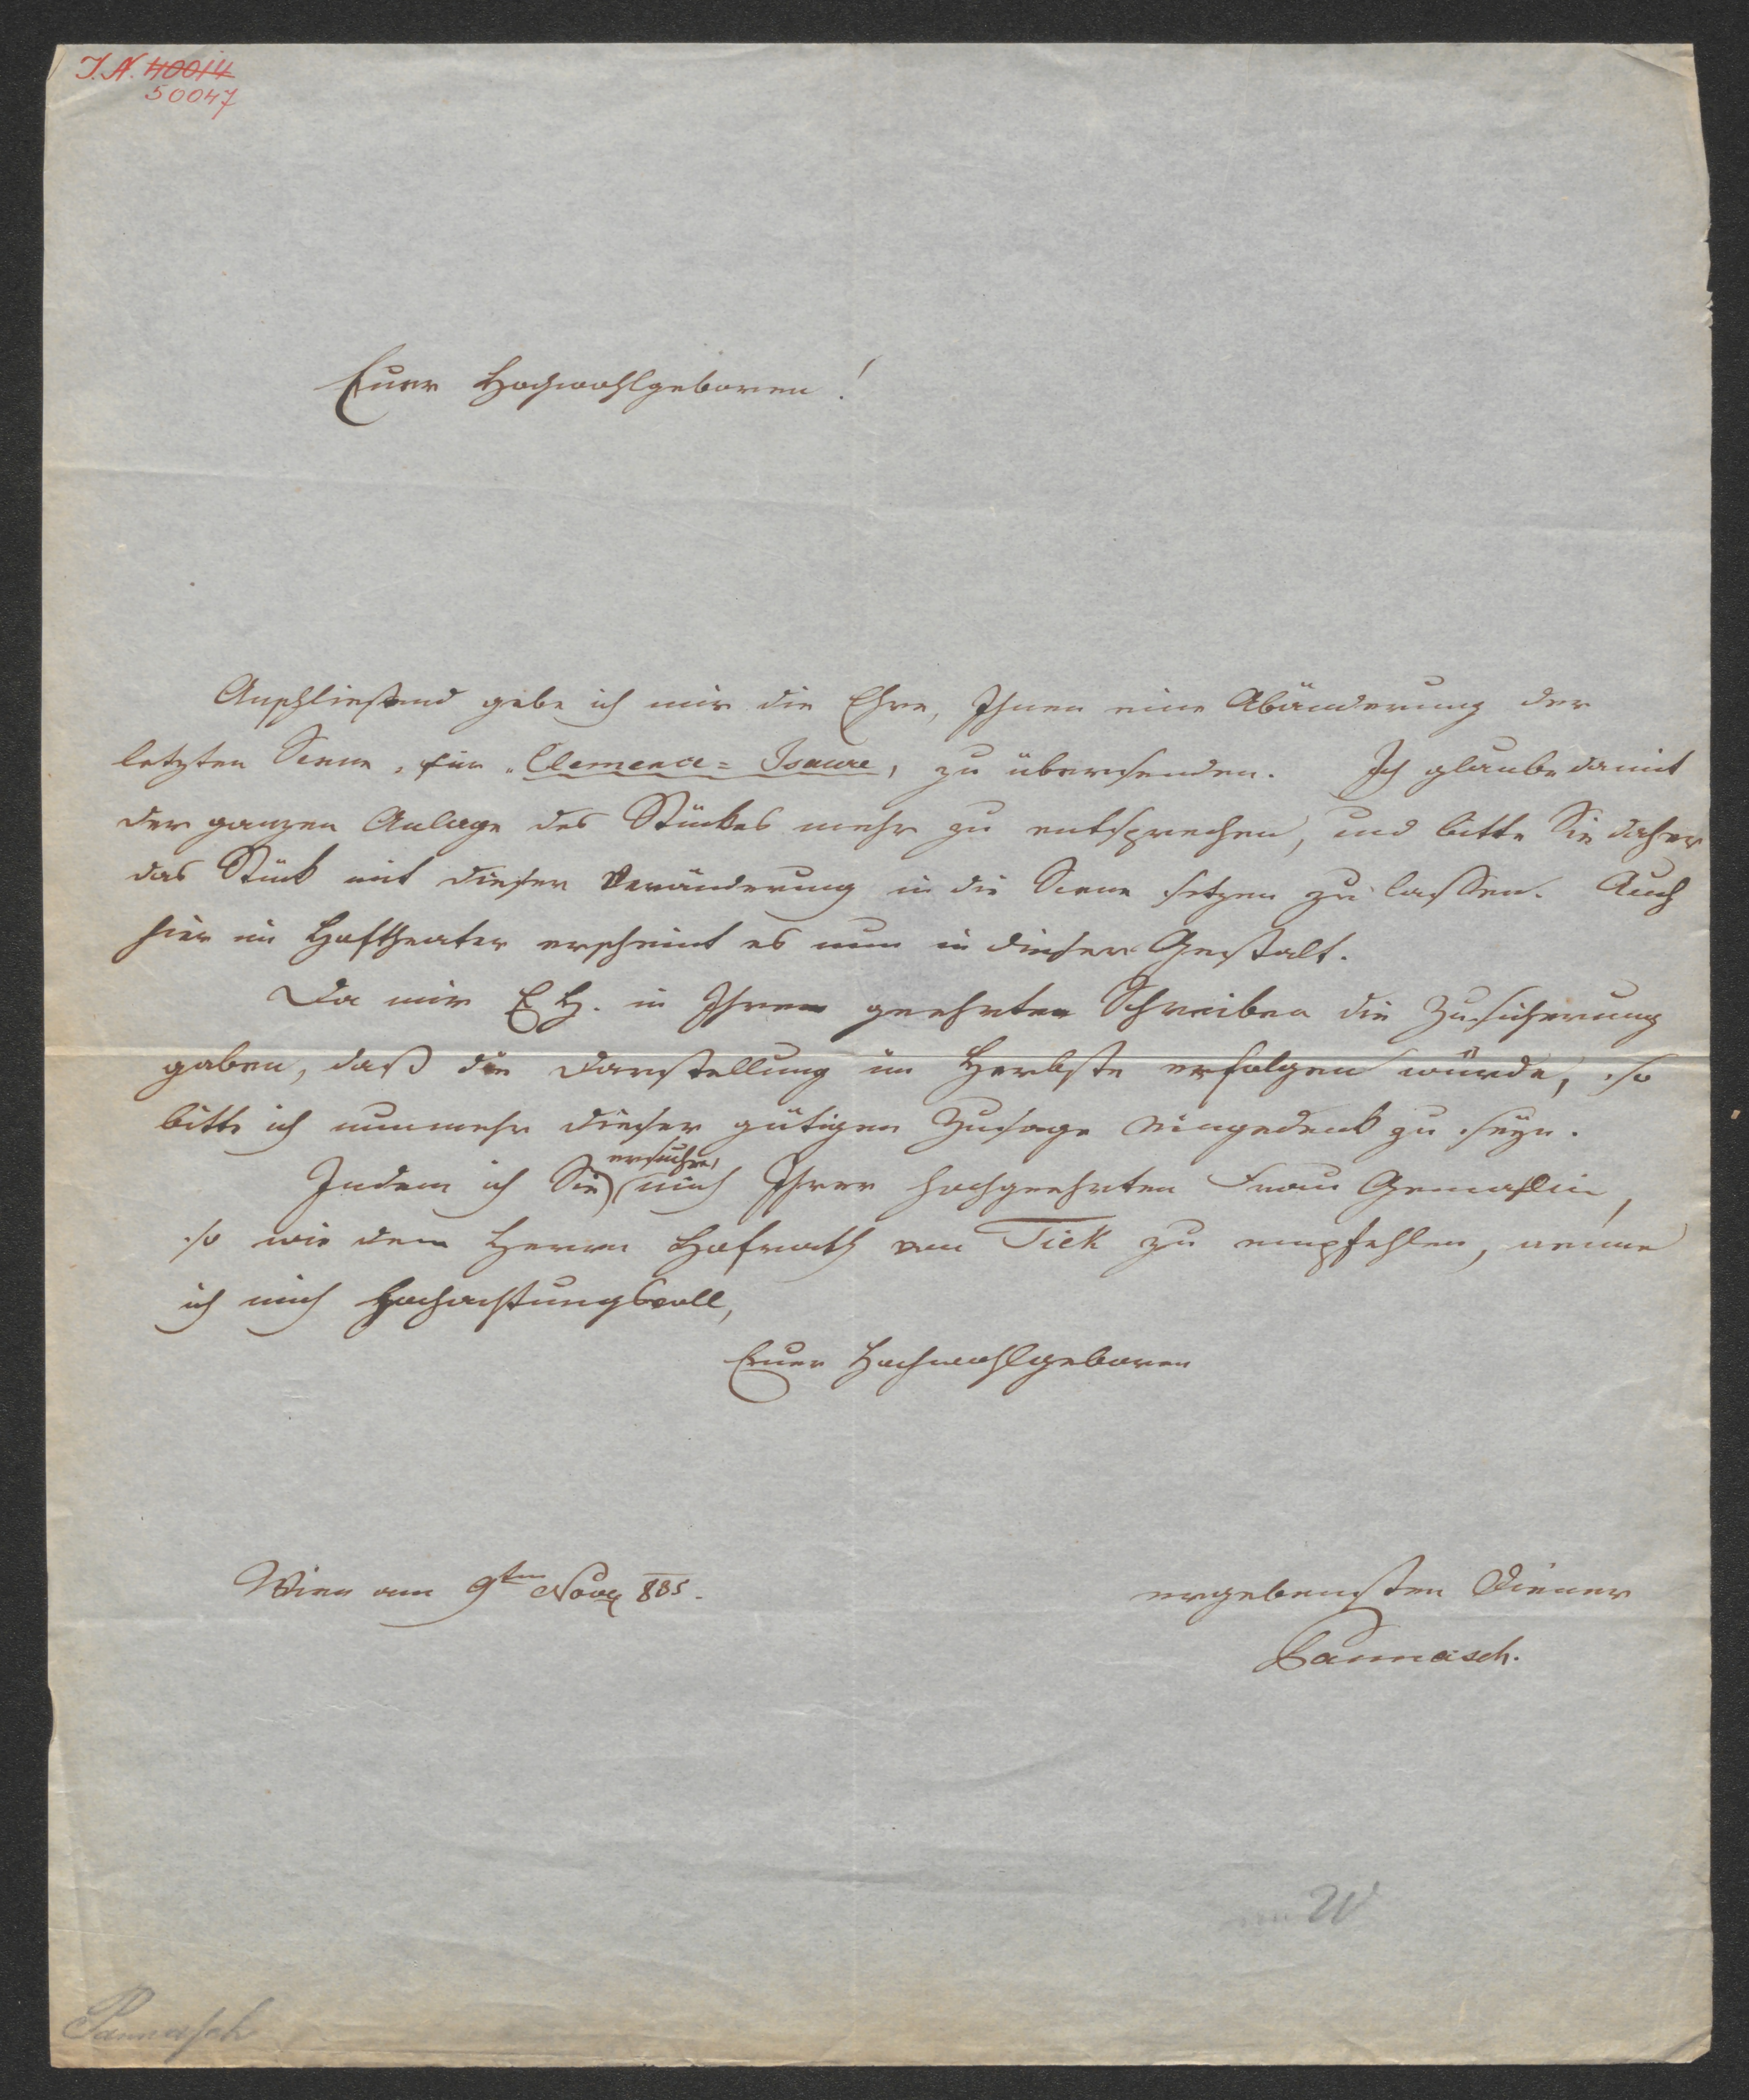 J. N. 40014
50047
Euer Hochwohlgeboren!
Anschließend gebe ich mir die Ehre, Ihnen eine Abänderung der
letzten Scene, für „Clemence=Isaure, zu übersenden. Ich glaube damit
der ganzen Anlage des Stückes mehr zu entsprechen, und bitte Sie daher
das Stück mit dieser Veränderung in die Scene setzen zu lassen. Auch
hier im Hoftheater erscheint es nun in dieser Gestalt.
Da mir E. H. in Ihrem geehrten Schreiben die Zusicherung
gaben, daß die Darstellung im Herbste erfolgen würde, so
bitte ich nunmehr dieser gütigen Zusage eingedenk zu seyn.
ersuche,
Indem ich Sie mich Ihrer hochgeehrten Frau Gemahlin,
so wie dem Herrn Hofrath von Tiek zu empfehlen, nenne
ich mich Hochachtungsvoll,
Euer Hochwohlgeboren
Wien am 9ten Nov 835.
ergebensten Diener
Pannasch.
W
Pannasch